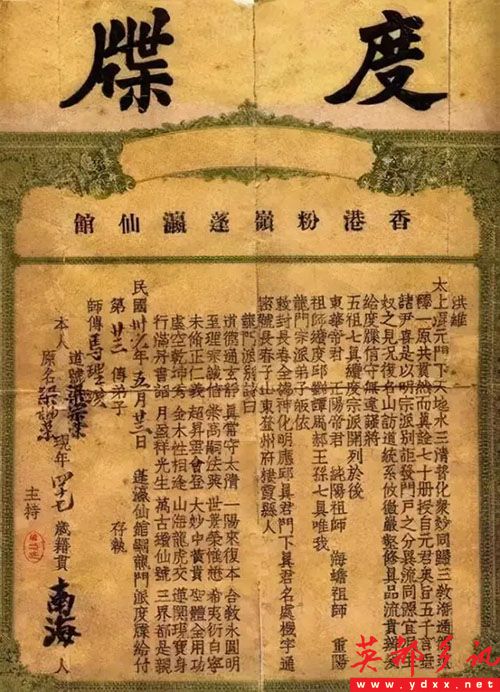 度牒
香港粉嶺蓬瀛仙館
洪維
太上 元門下天地水三清普化衆妙同歸三教
一原共貫然而真詮七十册授自元君奥旨五千言
諸尹喜是以明宗派別詎發門戶之分異流同源宜
之見況復名山訪道統系攸徽嚴整修真品流貴
給度牒信守無違謹將
五祖七真續度宗派開列於後
東華帝君 正陽帝君 純陽祖師 海蟾祖師 重陽
祖師續度邱劉譚馬郝王孫七真唯我
龍門宗派弟子皈依
敕封長春全德神化明應邱真君門下真君名處機字通
密號長春子山東登州府棲霞縣人
龍門派別詩曰
道德通玄靜 真常守太清 一陽來復本 合教永圓明
至理宗誠信 崇高嗣法興 世景榮惟懋 希夷衍自寧
未修正仁義 超昇雲會登 大妙中黃貴 聖體全用功
虛空乾坤秀 金木性相逢 山海龍虎交 蓮開現寶身
行滿丹書詔 月盈祥光生 萬古續仙號 三界都是親
民國卅九年五月廿二日 蓬瀛仙館嗣龍門派度牒給付
第廿三傳弟子 存執
師傳馬理
本人 道號
原名 現年四十七歲籍貫南海人
主持
英都乡讯
www.ydxx.net